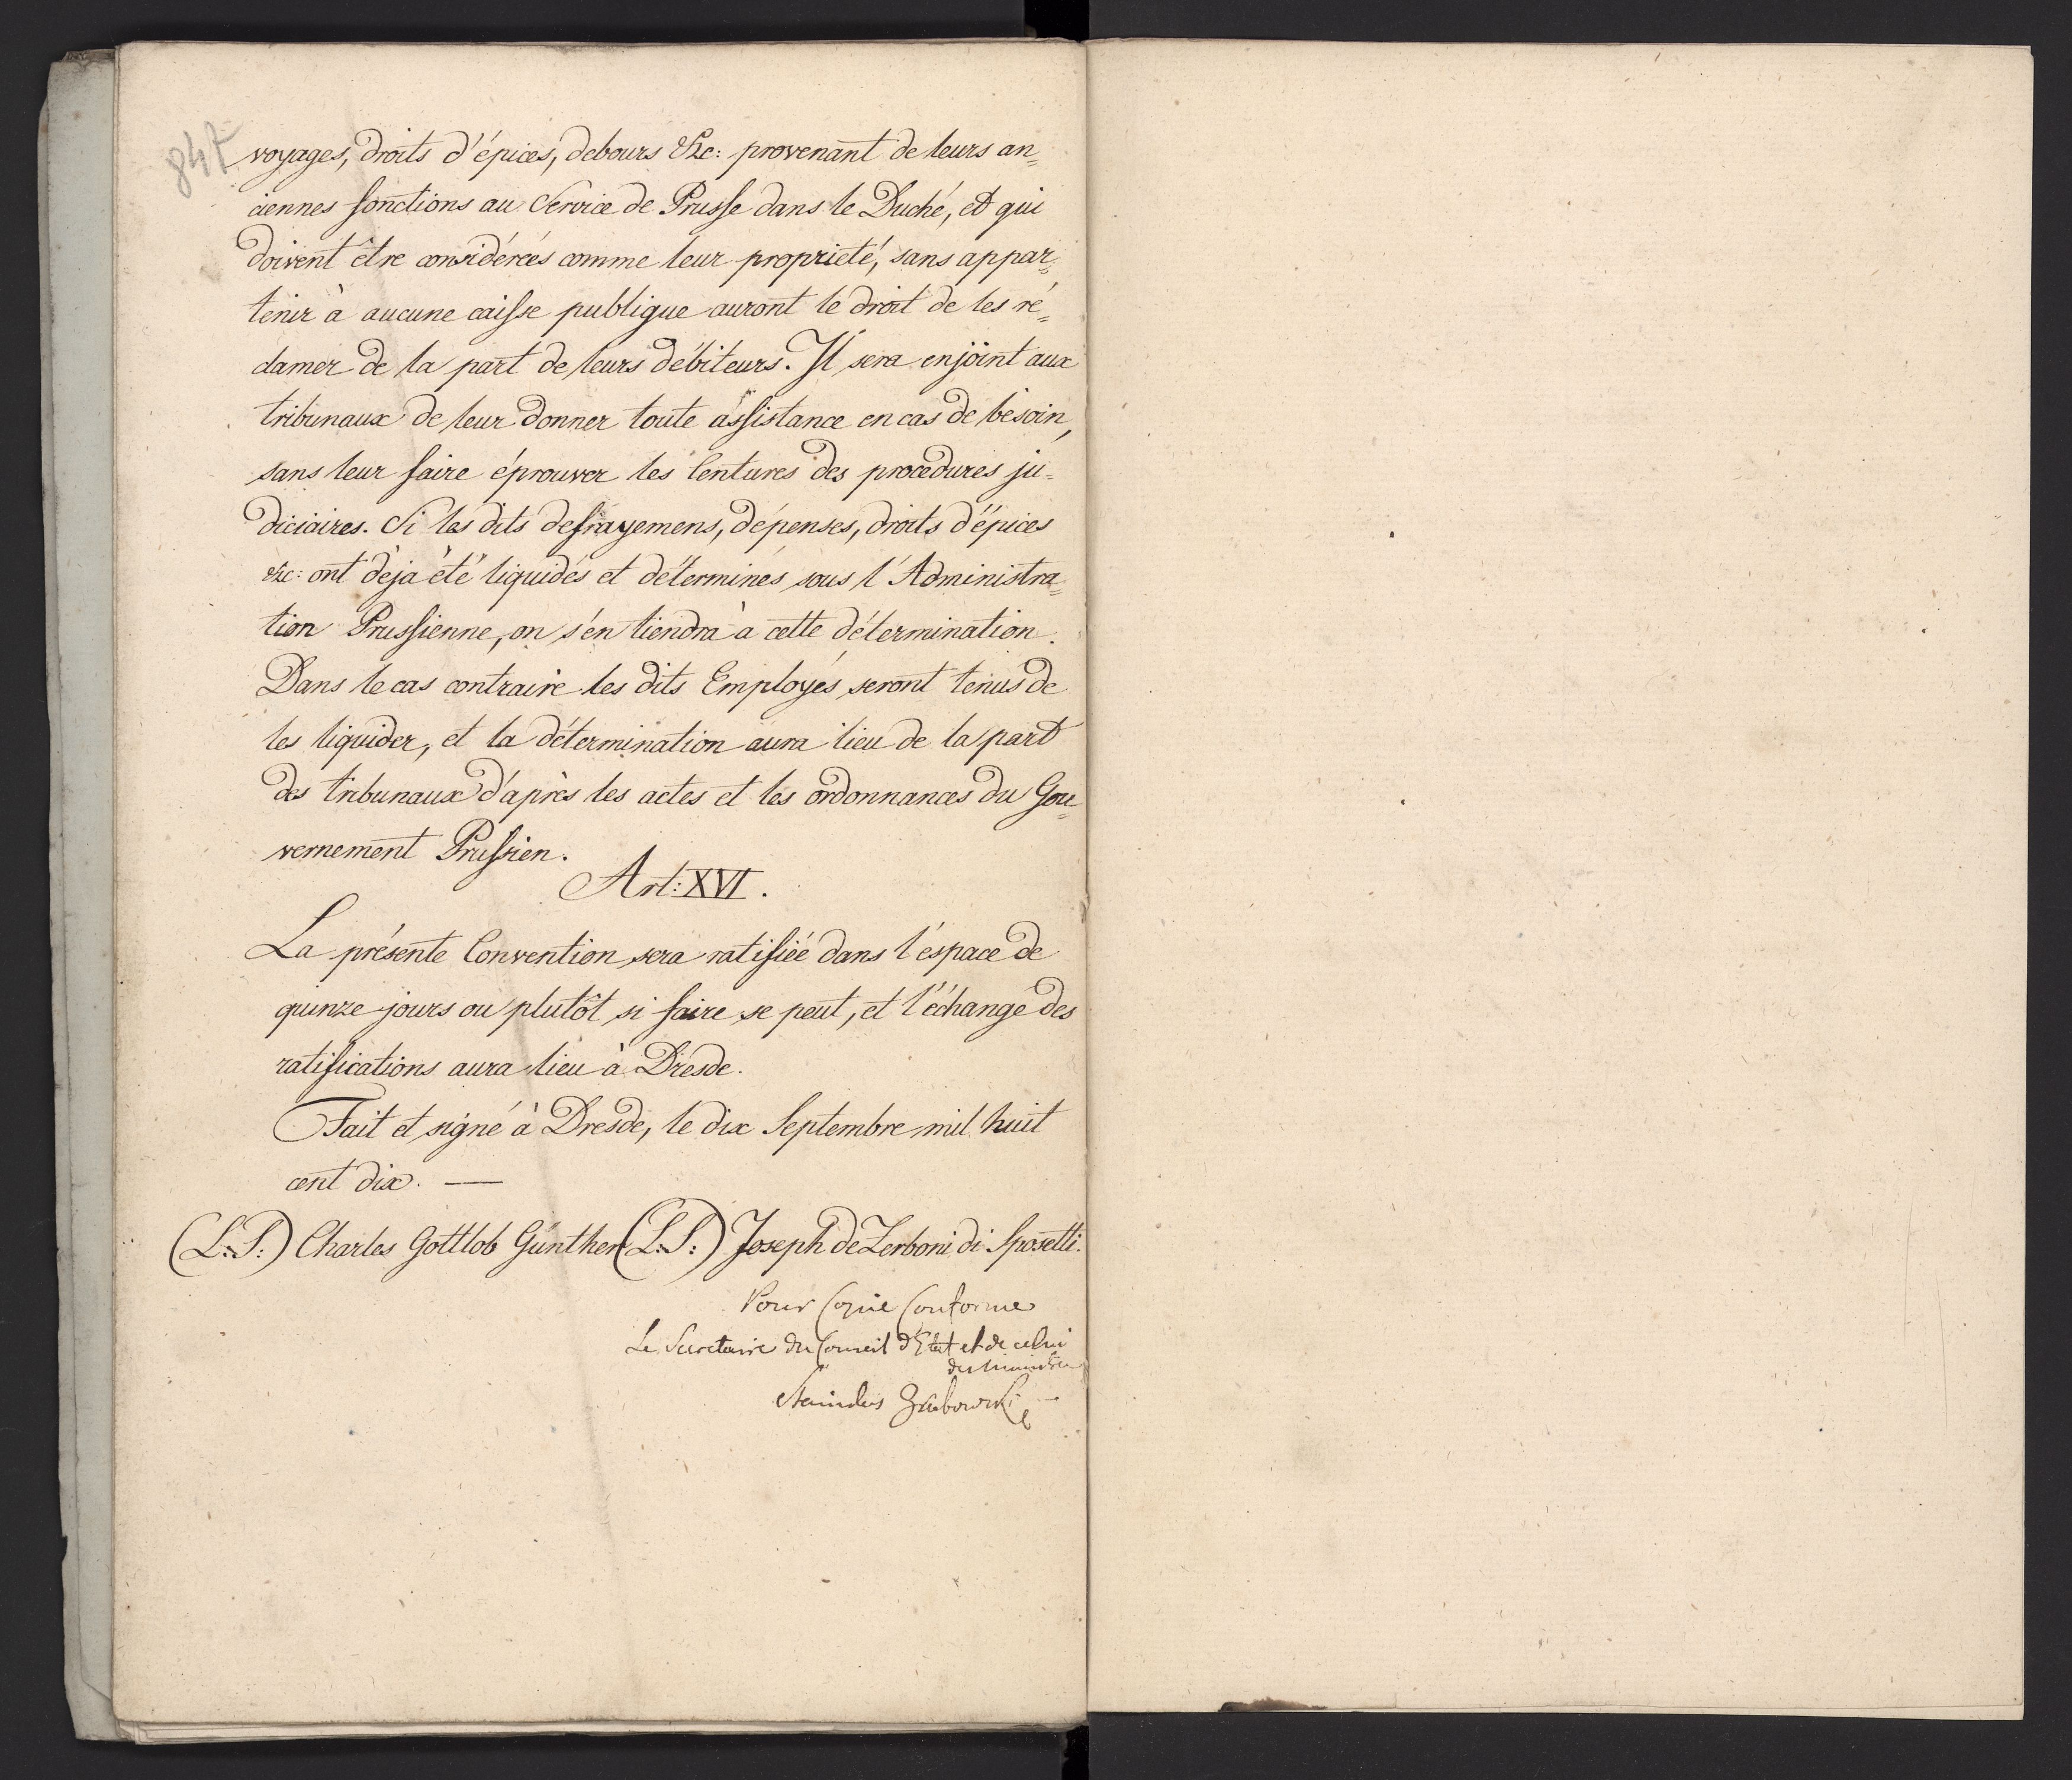 847
voyages, droits d'épices, debours &c: provenant de leurs an=
ciennes fonctions au Service de Prusse dans le Duché, et qui
doivent être considérées comme leur proprieté, sans appar=
tenir à aucune caisse publique auront le droit de les ré=
clamer de la part de leurs débiteurs. Il sera enjoint aux
tribunaux de leur donner toute assistance en cas de besoin,
sans leur faire éprouver les lentures des procedures ju=
diciaires. Si les dits defrayemens, dépenses, droits d'épices
&c: ont déja été liquidés et déterminés sous l'Administra=
tion Prussienne, on s'en tiendra à cette détermination.
Dans le cas contraire les dits Employés seront tenus de
les liquider, et la détermination aura lieu de la part
des tribunaux d'après les actes et les ordonnances du Gou=
vernement Prussien.
Art: XVI.
La présente Convention sera ratifiée dans l'éspace de
quinze jours ou plutôt si faire se peut, et l'échange des
ratifications aura lieu à Dresde.
Fait et signé à Dresde, le dix Septembre mil huit
cent dix. —
(L:S:) Charles Gottlob Günther (L:S:) Joseph de Zerboni di Sposetti.
Pour Copie Conforme
Le Secretaire du Conseil d'Etat et de celui
des Ministres